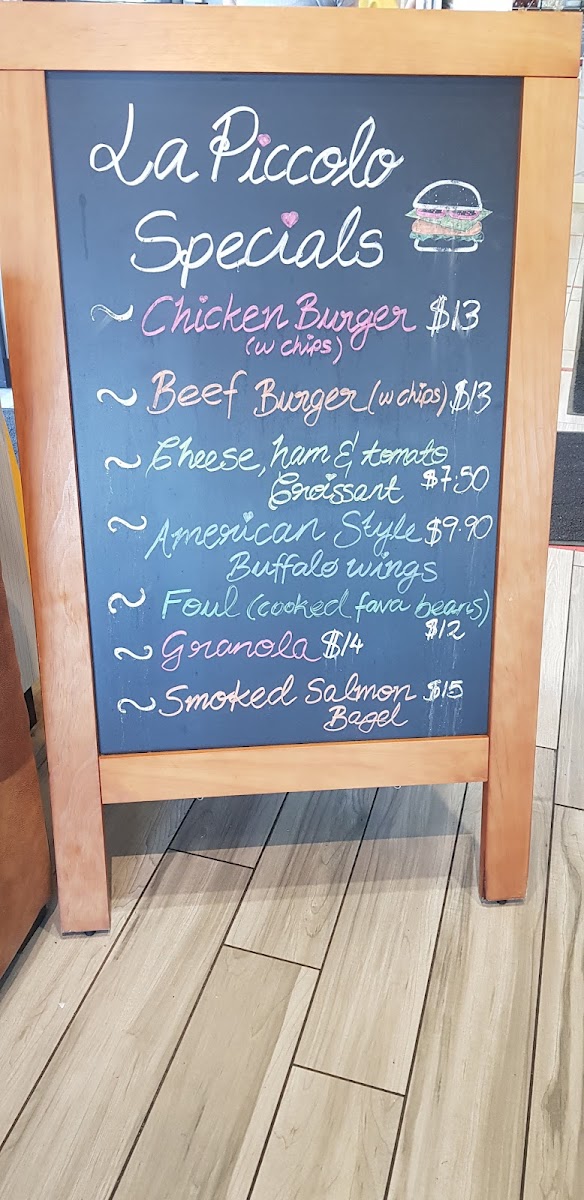 La Piccolo
Specials
~ Chicken Burger $13
(w chips)
~ Beef Burger (w chips) $13
~ Cheese, ham & tomato
Croissant $7.50
~ American Style $9.90
Buffalo wings
~ Foul (cooked fava beans)
$12
~ Granola $14
~ Smoked Salmon $15
Bagel